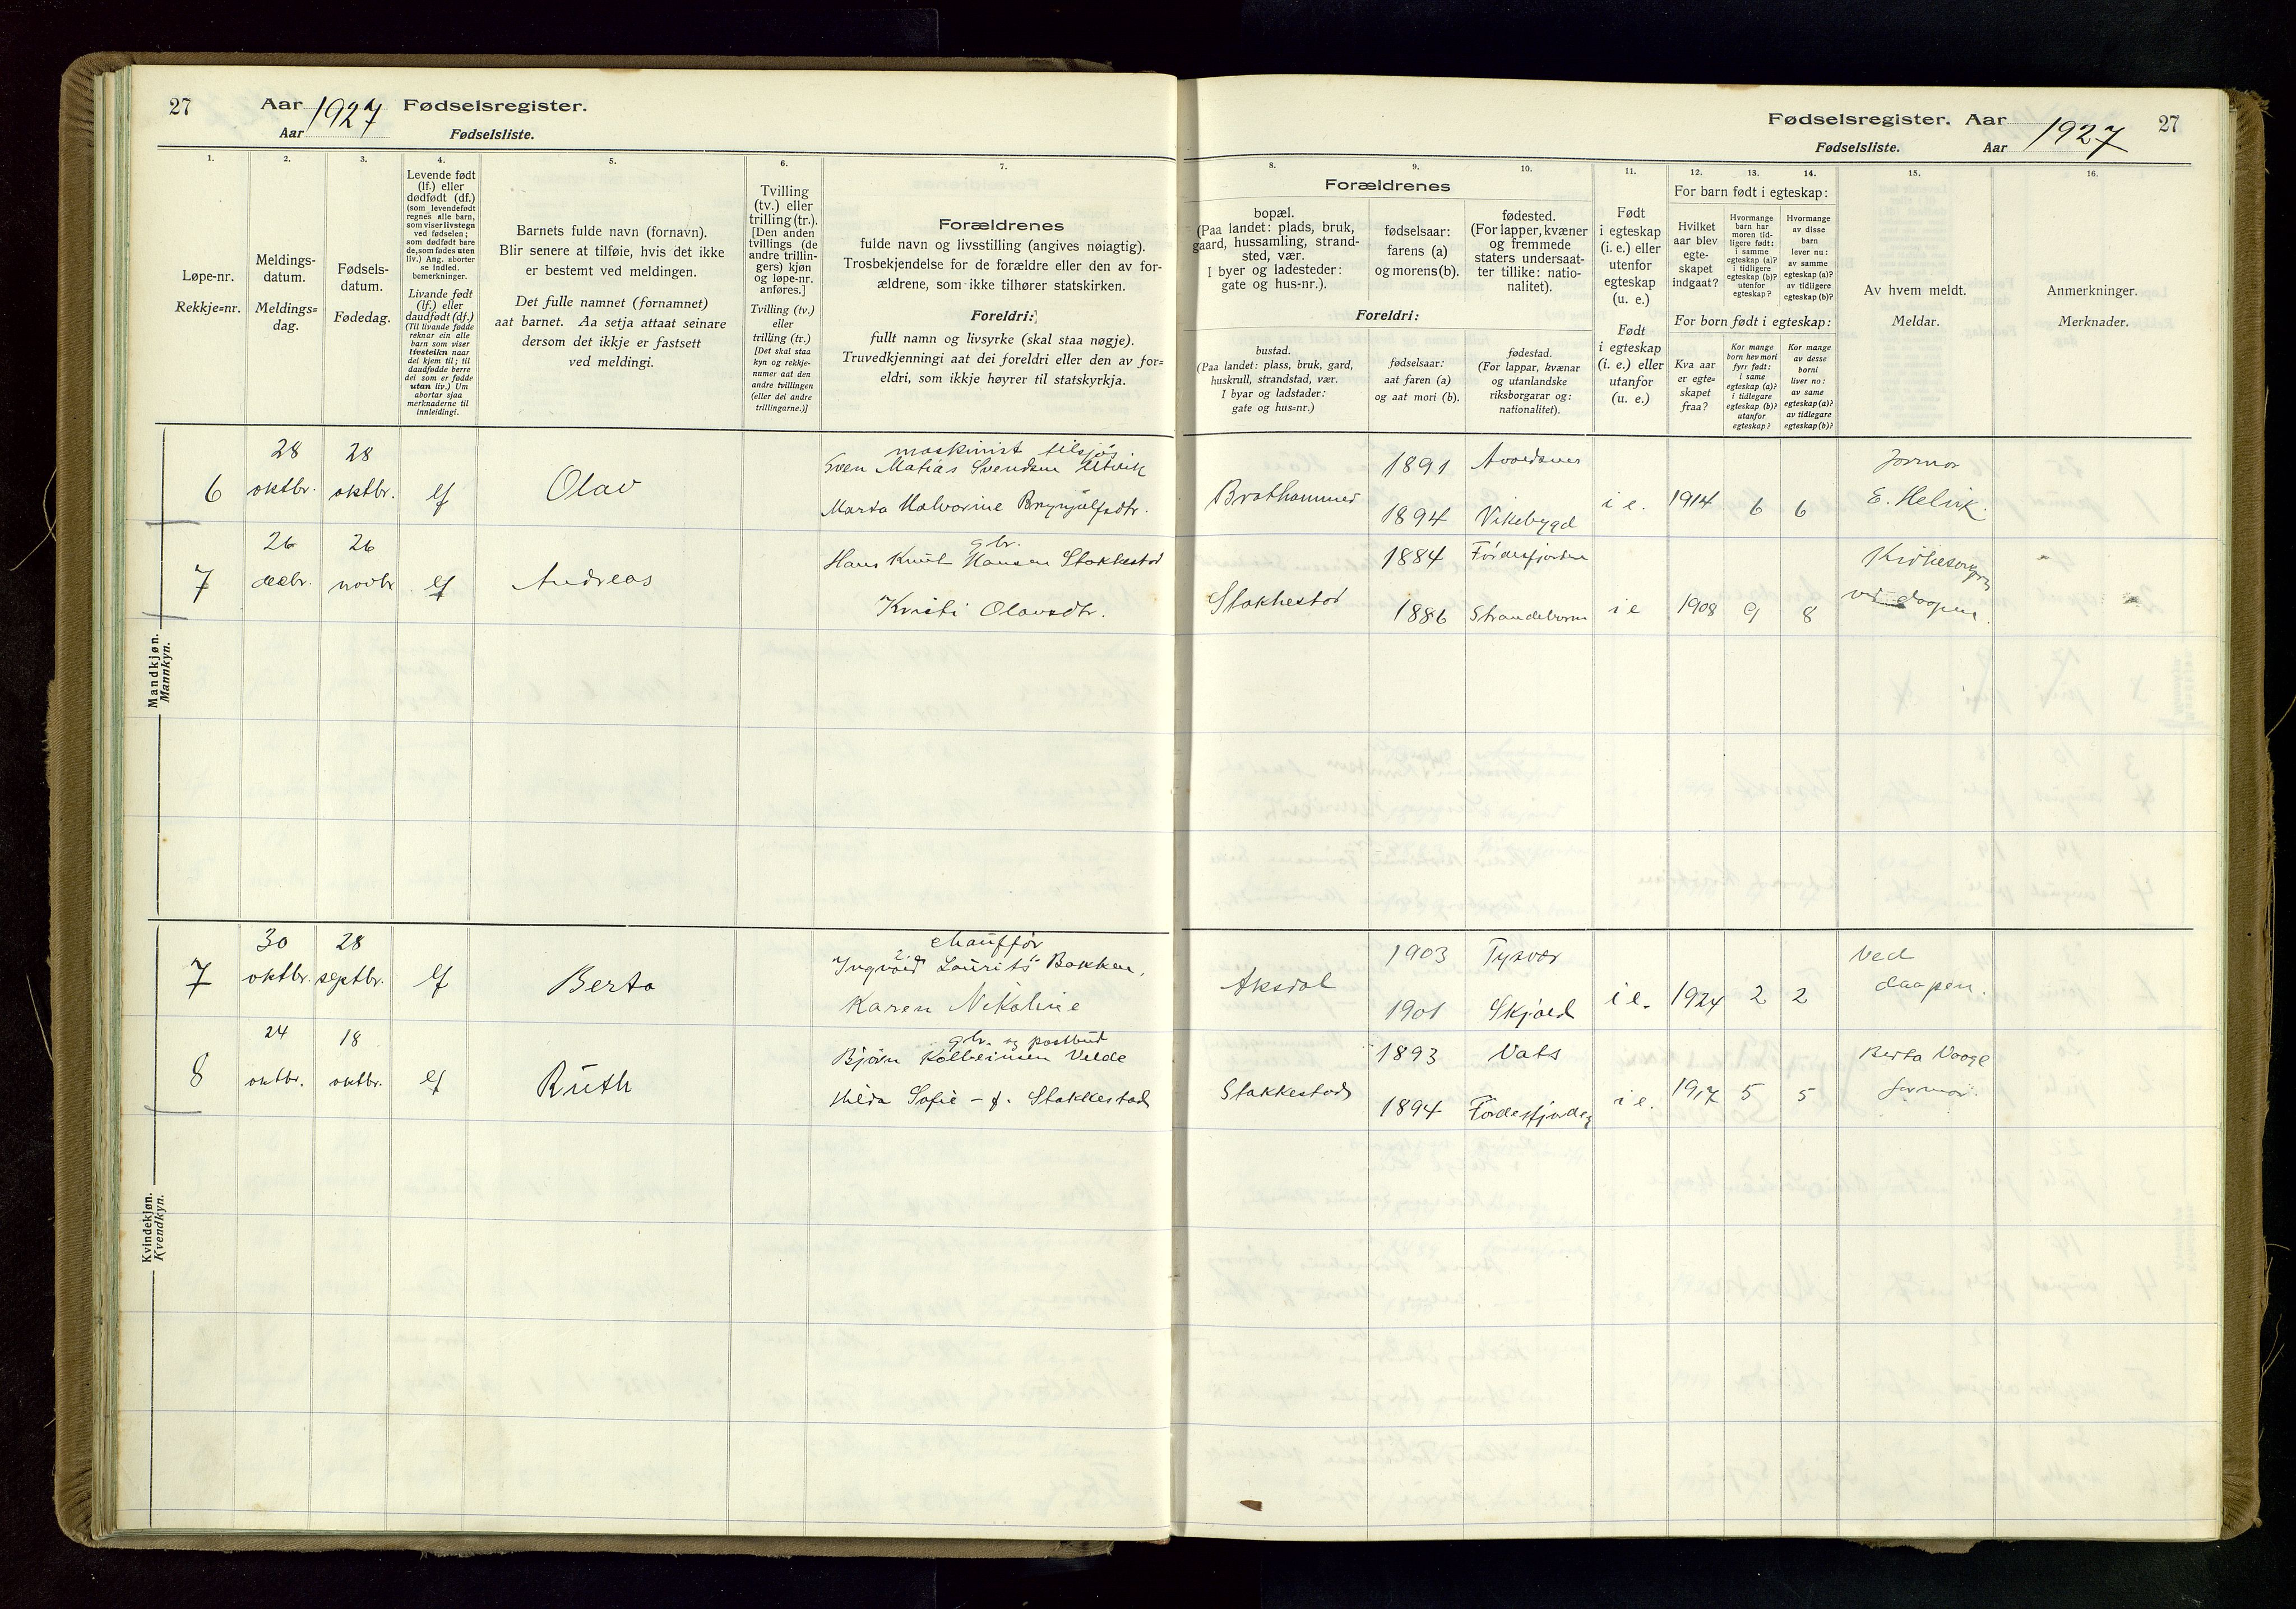 27
Aar 1927 Fødselsregister.
Aar Fødselsliste.
Fødselsregister. Aar 1927 27
Fødselsliste. Aar
1.
Løpe-nr.
Rekkje=nr.
2.
Meldings-
datum.
Meldings=
dag.
3.
Fødsels-
datum.
Fødedag.
4.
Levende født
(lf.) eller
dødfødt (df.)
(som levendefødt
regnes alle barn,
som viser livstegn
ved fødselen;
som dødfødt bare
de, som fødes uten
liv.) Ang. aborter
se indled.
bemerkninger.
Livande født
(lf.) eller
daudfødt (df.)
(Til livande fødde
reknar ein alle
barn som viser
livsteikn naar
dei kjem til; til
daudfødde berre
dei som er fødde
utan liv.) Um
abortar sjaa
merknaderne til
innleidingi.
5.
Barnets fulde navn (fornavn).
Blir senere at tilføie, hvis det ikke
er bestemt ved meldingen.
Det fulle namnet (fornamnet)
aat barnet. Aa setja attaat seinare
dersom det ikkje er fastsett
ved meldingi.
6.
Tvilling
(tv.) eller
trilling (tr.).
[Den anden
tvillings (de
andre trillin-
gers) kjøn
og løpe-nr.
anføres.]
Tvilling (tv.)
eller
trilling (tr.)
[Det skal staa
kyn og rekkje-
numer aat den
andre tvillingen
(eller dei andre
trillingarne.)]
7.
Forældrenes
fulde navn og livsstilling (angives nøiagtig).
Trosbekjendelse for de forældre eller den av for-
ældrene, som ikke tilhører statskirken.
Foreldri:
fullt namn og livsyrke (skal staa nøgje).
Truvedkjenningi aat dei foreldri eller den av for=
eldri, som ikkje høyrer til statskyrkja.
Forældrenes
8.
bopæl.
(Paa landet: plads, bruk,
gaard, hussamling, strand-
sted, vær.
I byer og ladesteder:
gate og hus-nr.).
9.
fødselsaar:
farens (a)
og morens (b).
10.
fødested.
(For lapper, kvæner
og fremmede
staters undersaat-
ter tillike: natio-
nalitet).
Foreldri:
bustad.
(Paa landet: plass, bruk, gard,
huskrull, strandstad, vær.
I byar og ladstader:
gate og hus-nr.)
fødselsaar:
aat faren (a)
og aat mori (b).
fødestad.
(For lappar, kvænar
og utanlandske
riksborgarar og:
nationalitet).
11.
Født
i egteskap
(i. e.) eller
utenfor
egteskap
(u. e.)
Født
i egteskap
(i. e.) eller
utanfor
(u. e.)
12. 13. 14.
For barn født i egteskap:
Hvilket
aar blev
egte-
skapet
indgaat?
Hvormange
barn har
moren tid-
ligere født:
i samme
egteskap (a)?
i tidligere
egteskap (b)?
utenfor
egteskap?
Hvormange
av disse
barn
lever nu:
av samme
egteskap (a)?
av tidligere
egteskap (b)?
For born født i egteskap:
Kva aar
er egte=
skapet
fraa?
Kor mange
born hev mori
fyrr født:
i same
egteskap (a)?
i tidlegare
egteskap (b)?
utanfor
egteskap?
Kor mange
av desse
borni
liver no:
av same
egteskap (a)?
av tidlegare
egteskap (b)?
15.
Av hvem meldt.
Meldar.
16.
Anmerkninger.
Merknader.
Mandkjøn.
Mannkyn.
6 28 oktbr. 28 oktbr. lf Olav
maskinist tilsjøs
Sven Matias Svendsen Utvik
Marta Halvorine Brynjulfsdtr.
Brathammer 1891 Avaldsnes
1894 Vikebygd i e. 1914 6 6
Jormor
E. Helvik.
7 26 decbr. 26 novbr lf Andreas
gbr.
Hans Knut Hansen Stakkestad
Kristi Olavsdtr.
Stakkestad 1884 Førdesfjorden
1886 i e 1908 9 8
ved daapen.
Kvindekjøn.
Kvendkyn.
7 30 oktbr. 28 septbr. lf Berta
chauffør
Ingvald Laurits Bakken,
Karen Nikoline
Aksdal 1903 Tysvær
1901 Skjold i e. 1924 2 2
Ved
daapen.
8 24 oktbr. 18 oktbr. lf Ruth
gbr. og postbud
Bjørn Kolbeinsen Velde
Hilda Sofie – f. Stakkestad
Stakkestad 1893 Vats
1894 i e. 1917 5 5
Berta Vaage
jormor.